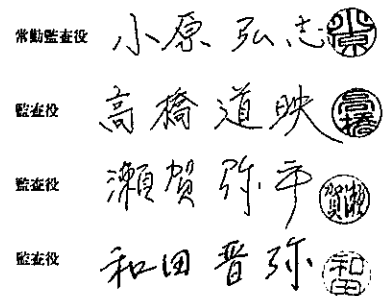 常勤監査役 小原 弘志 小原
監査役 高橋 道映 高橋
監査役 瀬賀 弥平 瀬賀
監査役 和田 晋弥 和田